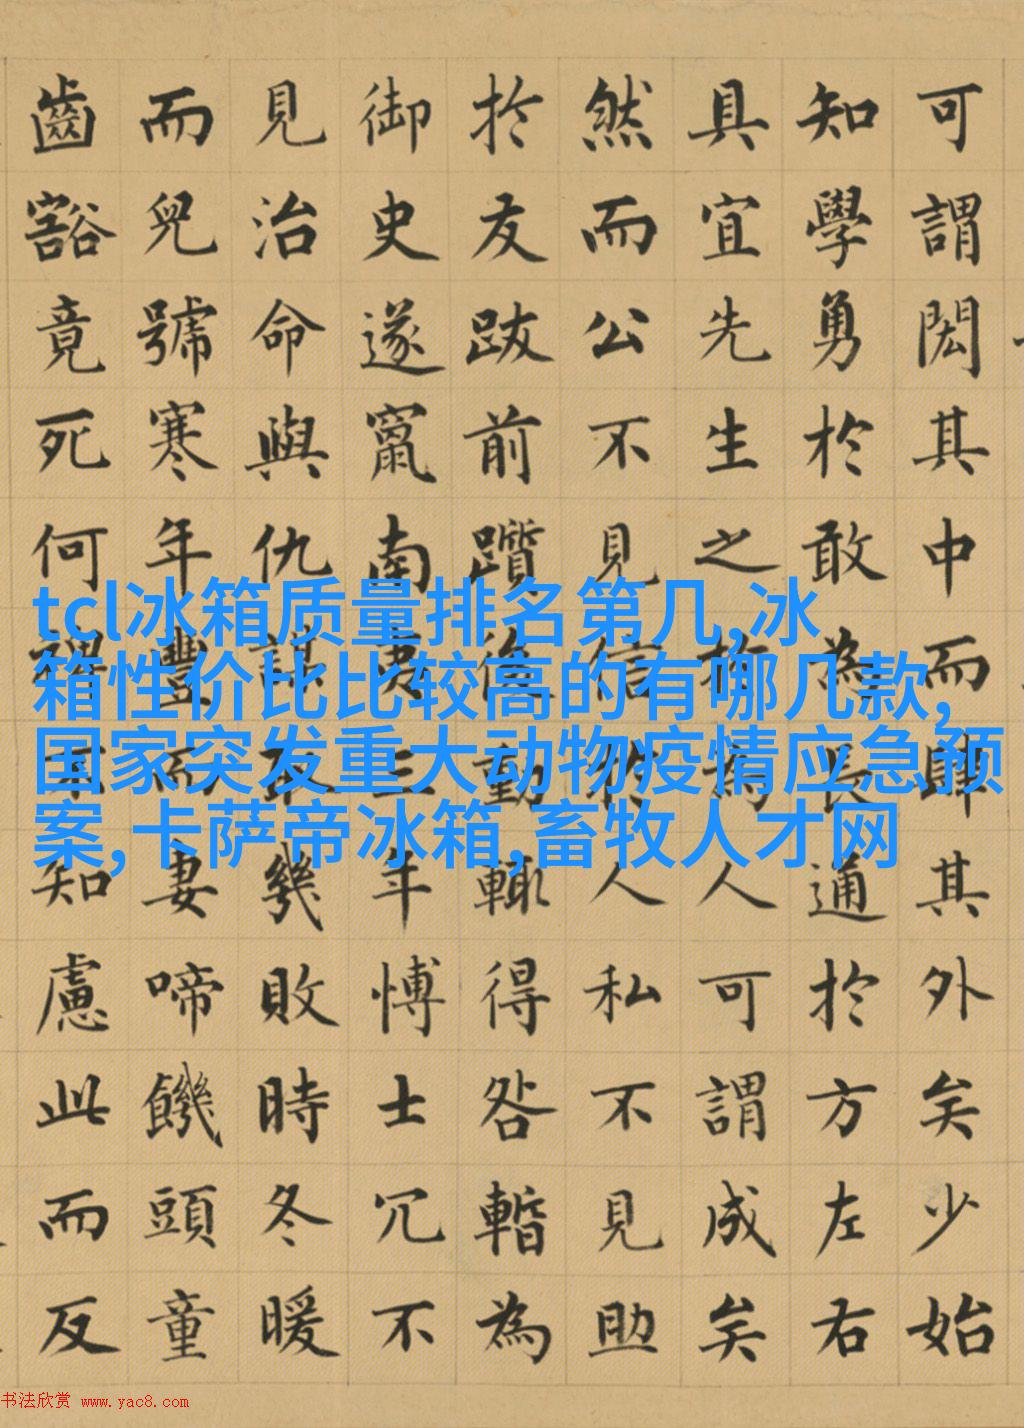 可謂閎其中而肆其外矣少始
知學勇於敢為長通於方左右
具宜先生之於為人可謂成矣
然而公不見信於人私不見助
於友跋前躓後動輒得咎暫為
御史遂竄南夷三年愽士冗不
見治命與仇謀取幾敗時冬暖
而兒號寒年豐而妻啼饑頭童
齒豁竟死何裨不知慮此而反
tcl冰箱质量排名第几,冰
箱性价比比较高的有哪几款,
国家突发重大动物疫情应急预
案,卡萨帝冰箱,畜牧人才网
书法欣赏 www.yac8.com